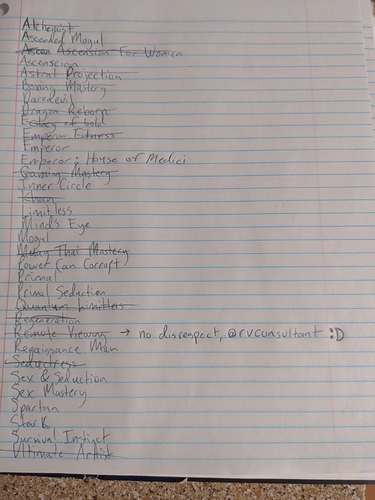 Alchemist
Ascended Mogul
Ascen Ascension For Women
Ascenscion
Astral Projection
Boxing Mastery
Daredevil
Dragon Reborn
Ecstasy of Gold
Emperor Fitness
Emperor
Emperor: House of Medici
Gaming Mastery
Inner Circle
Khan
Limitless
Mind's Eye
Mogul
Muay Thai Mastery
Power Can Corrupt
Primal
Primal Seduction
Quantum Limitless
Regeneration
Remote Viewing → no disrespect, @rvconsultant :D
Renaissance Man
Seductress
Sex & Seduction
Sex Mastery
Spartan
Stark
Survival Instinct
Ultimate Artist